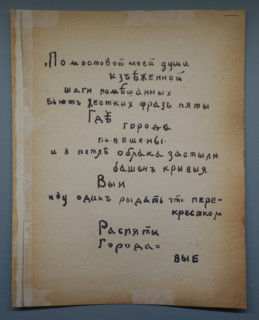 „По мостовой моей души
изъѣженной
шаги помѣшанных
вьютъ жесткихъ фразъ пяты
Гдѣ
города
повешены
и в петлѣ облака застыли
башенъ кривыя
Выи
иду один рыдать что пере-
крестком
Распяты
Города=
ВЫБ